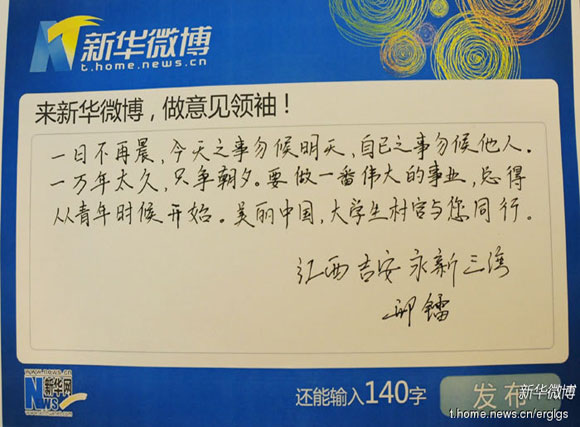 新华微博
t.home.news.cn
来新华微博，做意见领袖！
一日不再晨，今天之事勿候明天，自己之事勿候他人。
一万年太久，只争朝夕。要做一番伟大的事业，总得
从青年时候开始。美丽中国，大学生村官与您同行。
江西吉安永新三湾
镭
www.news.cn
新华网
News
还能输入140字
发布
新华微博
t.home.news.cn/erglgs